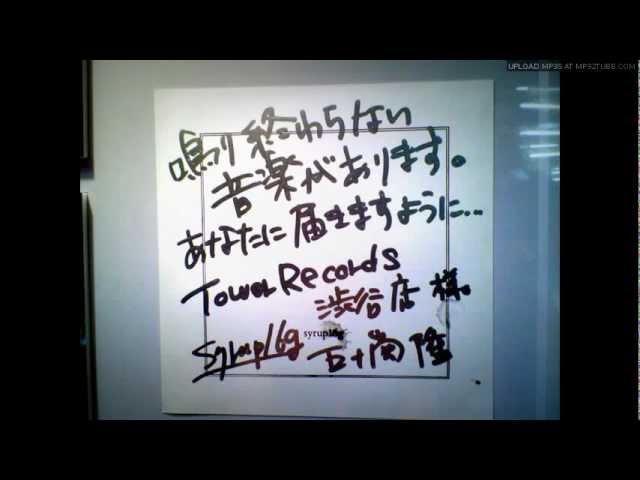 UPLOAD MP3S AT MP32TUBE.COM
鳴り終わらない
音楽があります。
あなたに届きますように...
Tower Records
渋谷店 様。
syrup16g
syrup16g 五十嵐 隆